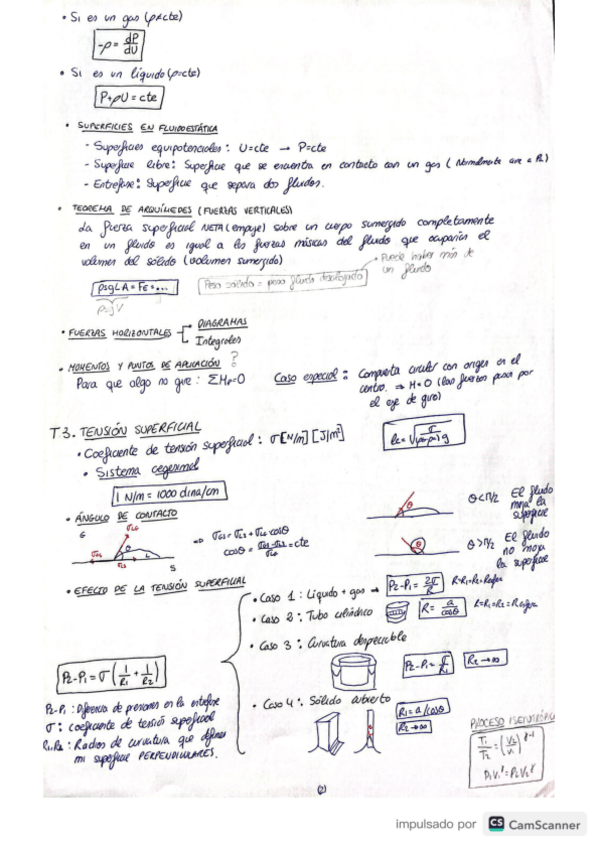 • Si es un gas (ρ≠cte)
-ρ = dP/dU
• Si es un líquido (ρ=cte)
P+ρU = cte
• SUPERFICIES EN FLUIDOESTÁTICA
- Superficies equipotenciales: U=cte → P=cte
- Superficie libre: Superficie que se encuentra en contacto con un gas (Normalmente aire a Pa)
- Entrefase: Superficie que separa dos fluidos.
• TEOREMA DE ARQUÍMEDES (FUERZAS VERTICALES)
La fuerza superficial NETA (empuje) sobre un cuerpo sumergido completamente
en un fluido es igual a las fuerzas másicas del fluido que ocuparía el
volumen del sólido (volumen sumergido)
• Puede haber más de
un fluido
ρgLA = FE = ...
Peso sólido = peso fluido desalojado
ρgV
• FUERZAS HORIZONTALES
DIAGRAMAS
Integrales
• MOMENTOS Y PUNTOS DE APLICACIÓN ?
Para que algo no gire: ΣMP=0
Caso especial: Compuerta circular con origen en el
centro. ⇒ M=0 (las fuerzas pasan por
el eje de giro)
T3. TENSIÓN SUPERFICIAL
• Coeficiente de tensión superficial: σ [N/m] [J/m²]
• Sistema cegesimal
1 N/m = 1000 dina/cm
• ÁNGULO DE CONTACTO
G
σLG
σGS
σLS
L
S
θ
⇒ σGS = σLS + σLG cosθ
cosθ = (σGS-σLS)/σLG = cte
θ<π/2 El fluido
moja la
superficie
θ>π/2 El fluido
no moja
la superficie
• EFECTO DE LA TENSIÓN SUPERFICIAL
P2-P1 = σ(1/R1 + 1/R2)
P2-P1: Diferencia de presiones en la entrefase
σ: coeficiente de tensión superficial
R1,R2: Radios de curvatura que definen
mi superficie PERPENDICULARES.
• Caso 1: Líquido + gas → P2-P1 = 2σ/R R=R1=R2=Resfera
• Caso 2: Tubo cilíndrico R = a/cosθ R=R1=R2=Resfera
• Caso 3: Curvatura despreciable
P2-P1 = σ/R1 R2→∞
• Caso 4: Sólido abierto
R1 = a/cosθ
R2→∞
T1/T2 = (V2/V1)^(γ-1)
P1V1^γ = P2V2^γ
(2)
impulsado por CS CamScanner